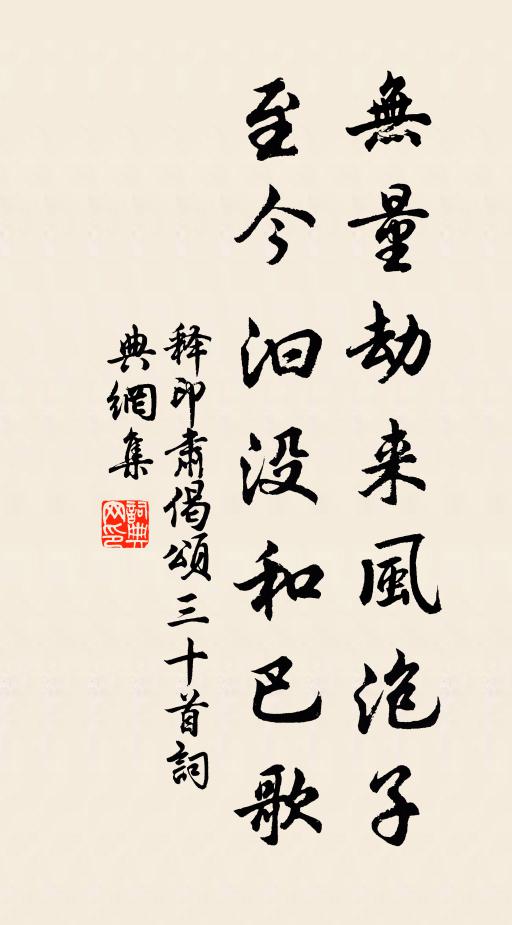 無量劫来風泡子
至今汩没和巴歌
释印肅偈頌三十首詞
典網集
詞典
网印